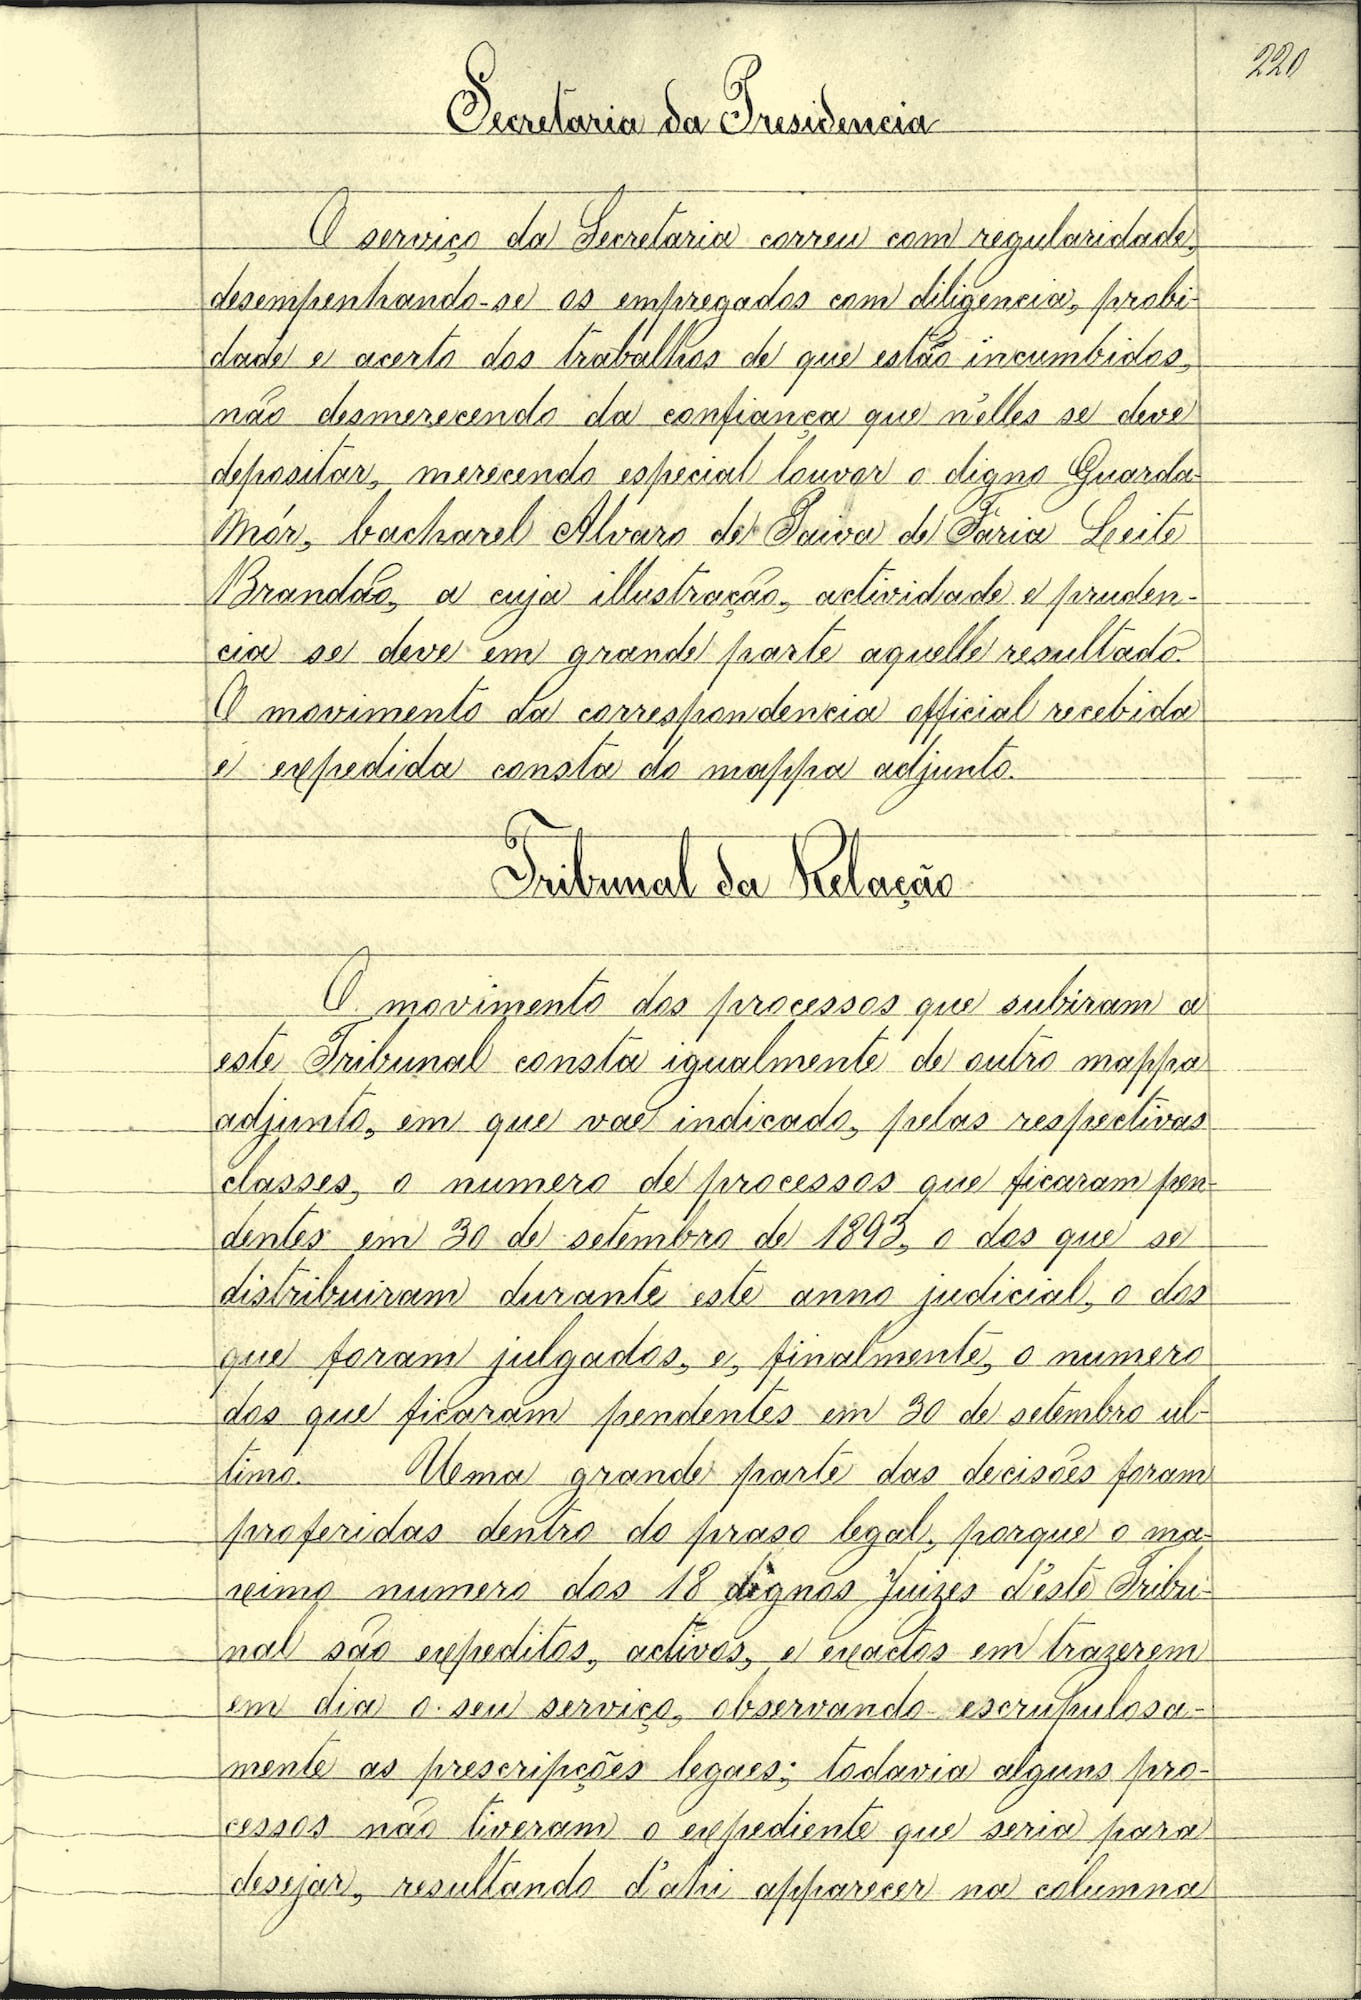 220
Secretaria da Presidencia
O serviço da Secretaria correu com regularidade,
desempenhando-se os empregados com diligencia, probi-
dade e acerto dos trabalhos de que estão incumbidos,
não desmerecendo da confiança que n'elles se deve
depositar, merecendo especial louvor o digno Guarda-
Mór, bacharel Alvaro de Paiva de Faria Leite
Brandão, a cuja illustração, actividade e pruden-
cia se deve em grande parte aquelle resultado.
O movimento da correspondencia official recebida
e expedida consta do mappa adjunto.
Tribunal da Relação
O movimento dos processos que subiram a
este Tribunal consta igualmente de outro mappa
adjunto, em que vae indicado, pelas respectivas
classes, o numero de processos que ficaram pen-
dentes em 30 de setembro de 1893, o dos que se
distribuiram durante este anno judicial, o dos
que foram julgados, e, finalmente, o numero
dos que ficaram pendentes em 30 de setembro ul-
timo. Uma grande parte das decisões foram
proferidas dentro do praso legal, porque o ma-
ximo numero dos 18 dignos Juizes d'este Tribu-
nal são expeditos, activos, e exactos em trazerem
em dia o seu serviço, observando escrupulosa-
mente as prescripções legaes; todavia alguns pro-
cessos não tiveram o expediente que seria para
desejar, resultando d'ahi apparecer na columna